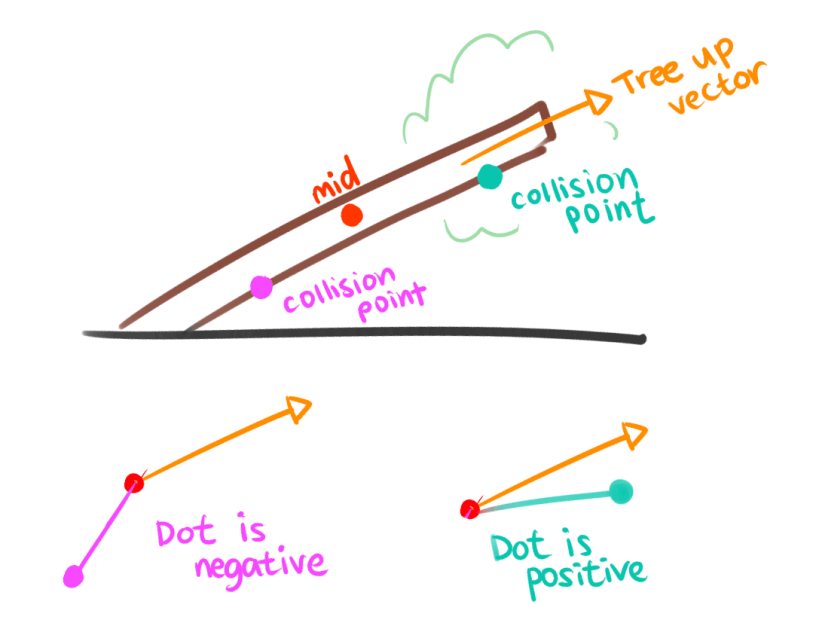 Tree up
vector
mid
collision
point
collision
point
Dot is
negative
Dot is
positive